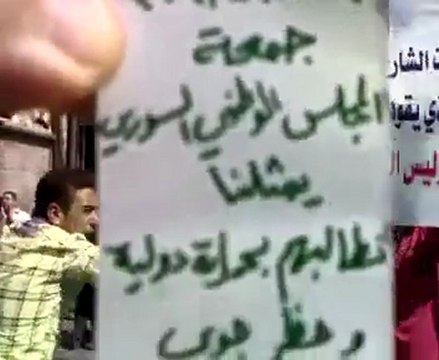 جمعة
المجلس الوطني السوري
يمثلنا
نطالبهم بحماية دولية
وحظر جوي
ت الشار
ي يقو
ليس ا